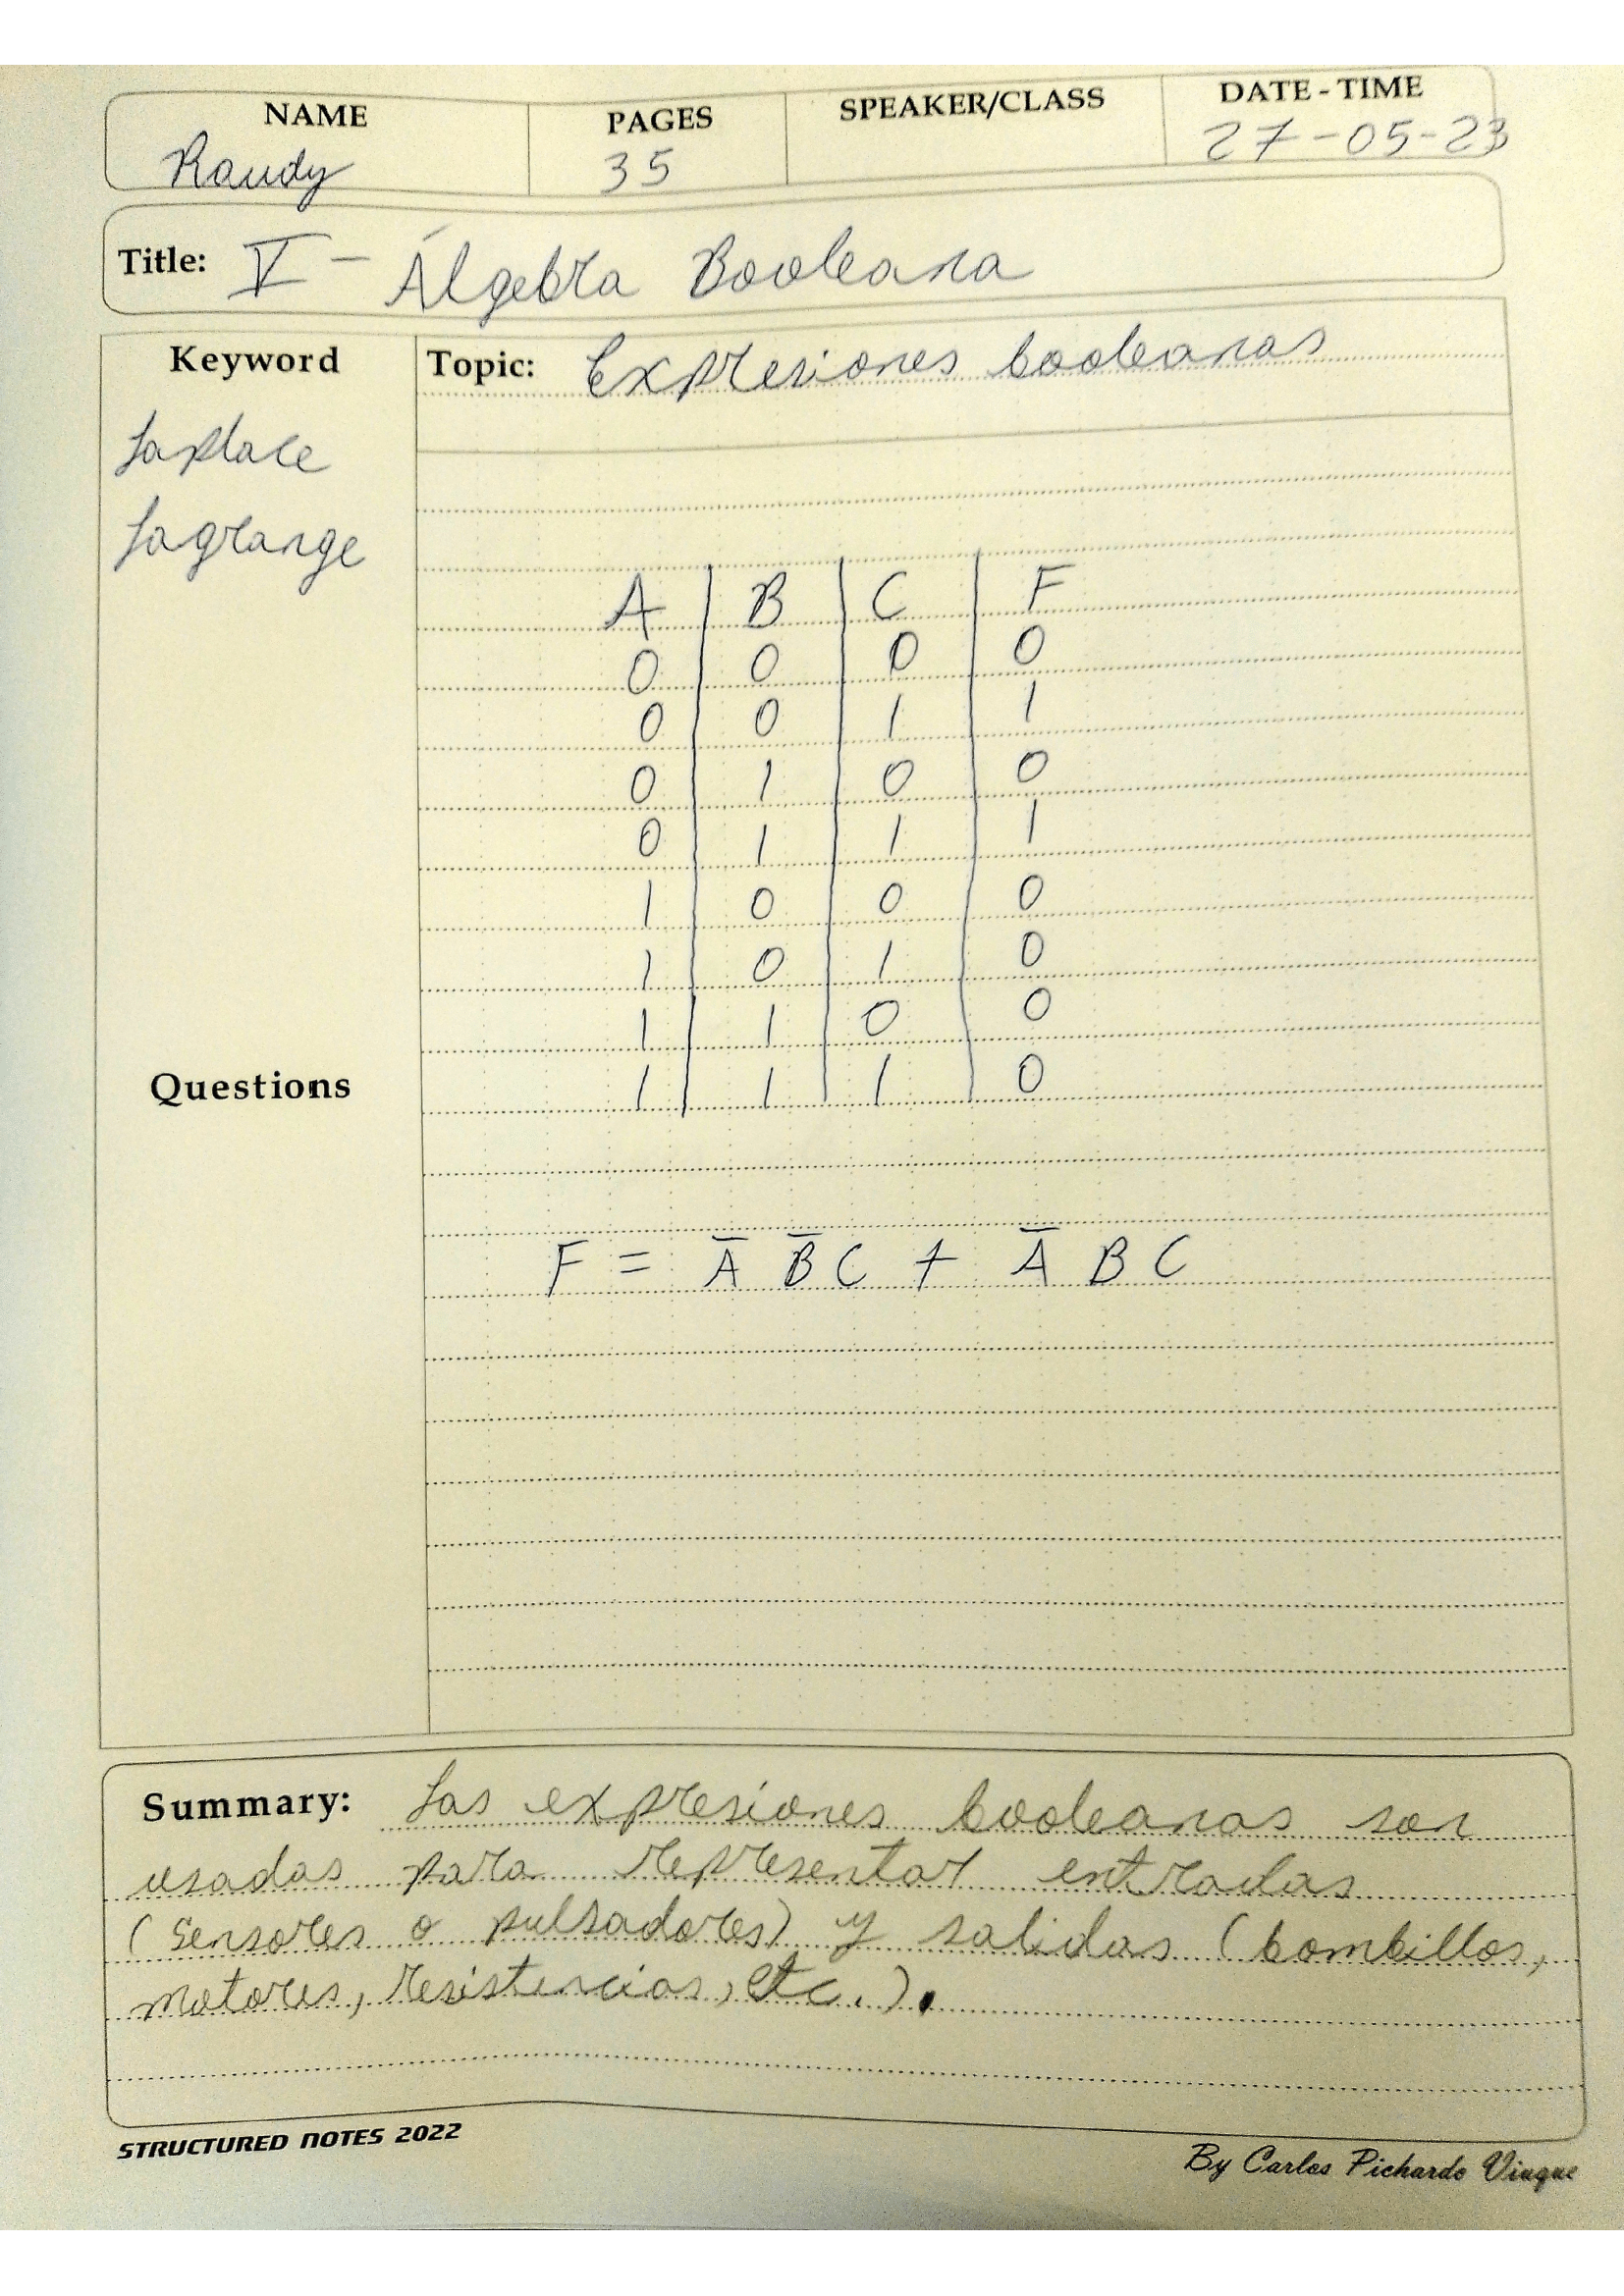 NAME PAGES SPEAKER/CLASS DATE-TIME
Raudy 35 27-05-23
Title: V - Álgebra Booleana
Keyword Topic: Expresiones booleanas
Laplace
Lagrange
A B C F
0 0 0 0
0 0 1 1
0 1 0 0
0 1 1 1
1 0 0 0
1 0 1 0
1 1 0 0
Questions 1 1 1 0
F = A̅ B̅ C + A̅ B C
Summary: Las expresiones booleanas son
usadas para representar entradas
(Sensores o pulsadores) y salidas (bombillos,
motores, resistencias, etc.).
STRUCTURED NOTES 2022
By Carlos Pichardo Viuque